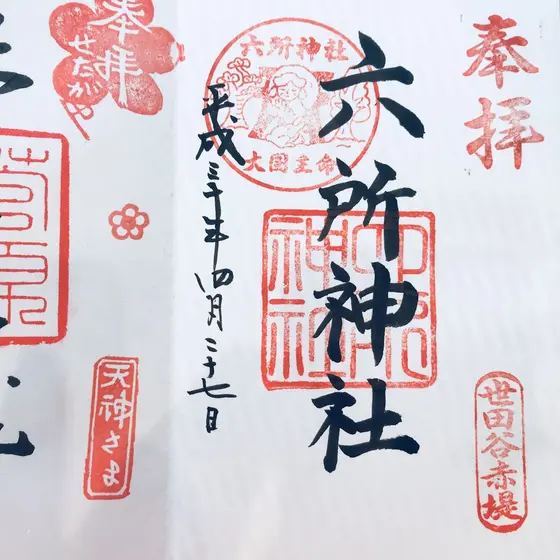 奉拝
六所神社
六所神社
大国主命
六所神社
世田谷赤堤
平成三十年四月二十七日
奉拝
せたがや
天神さま